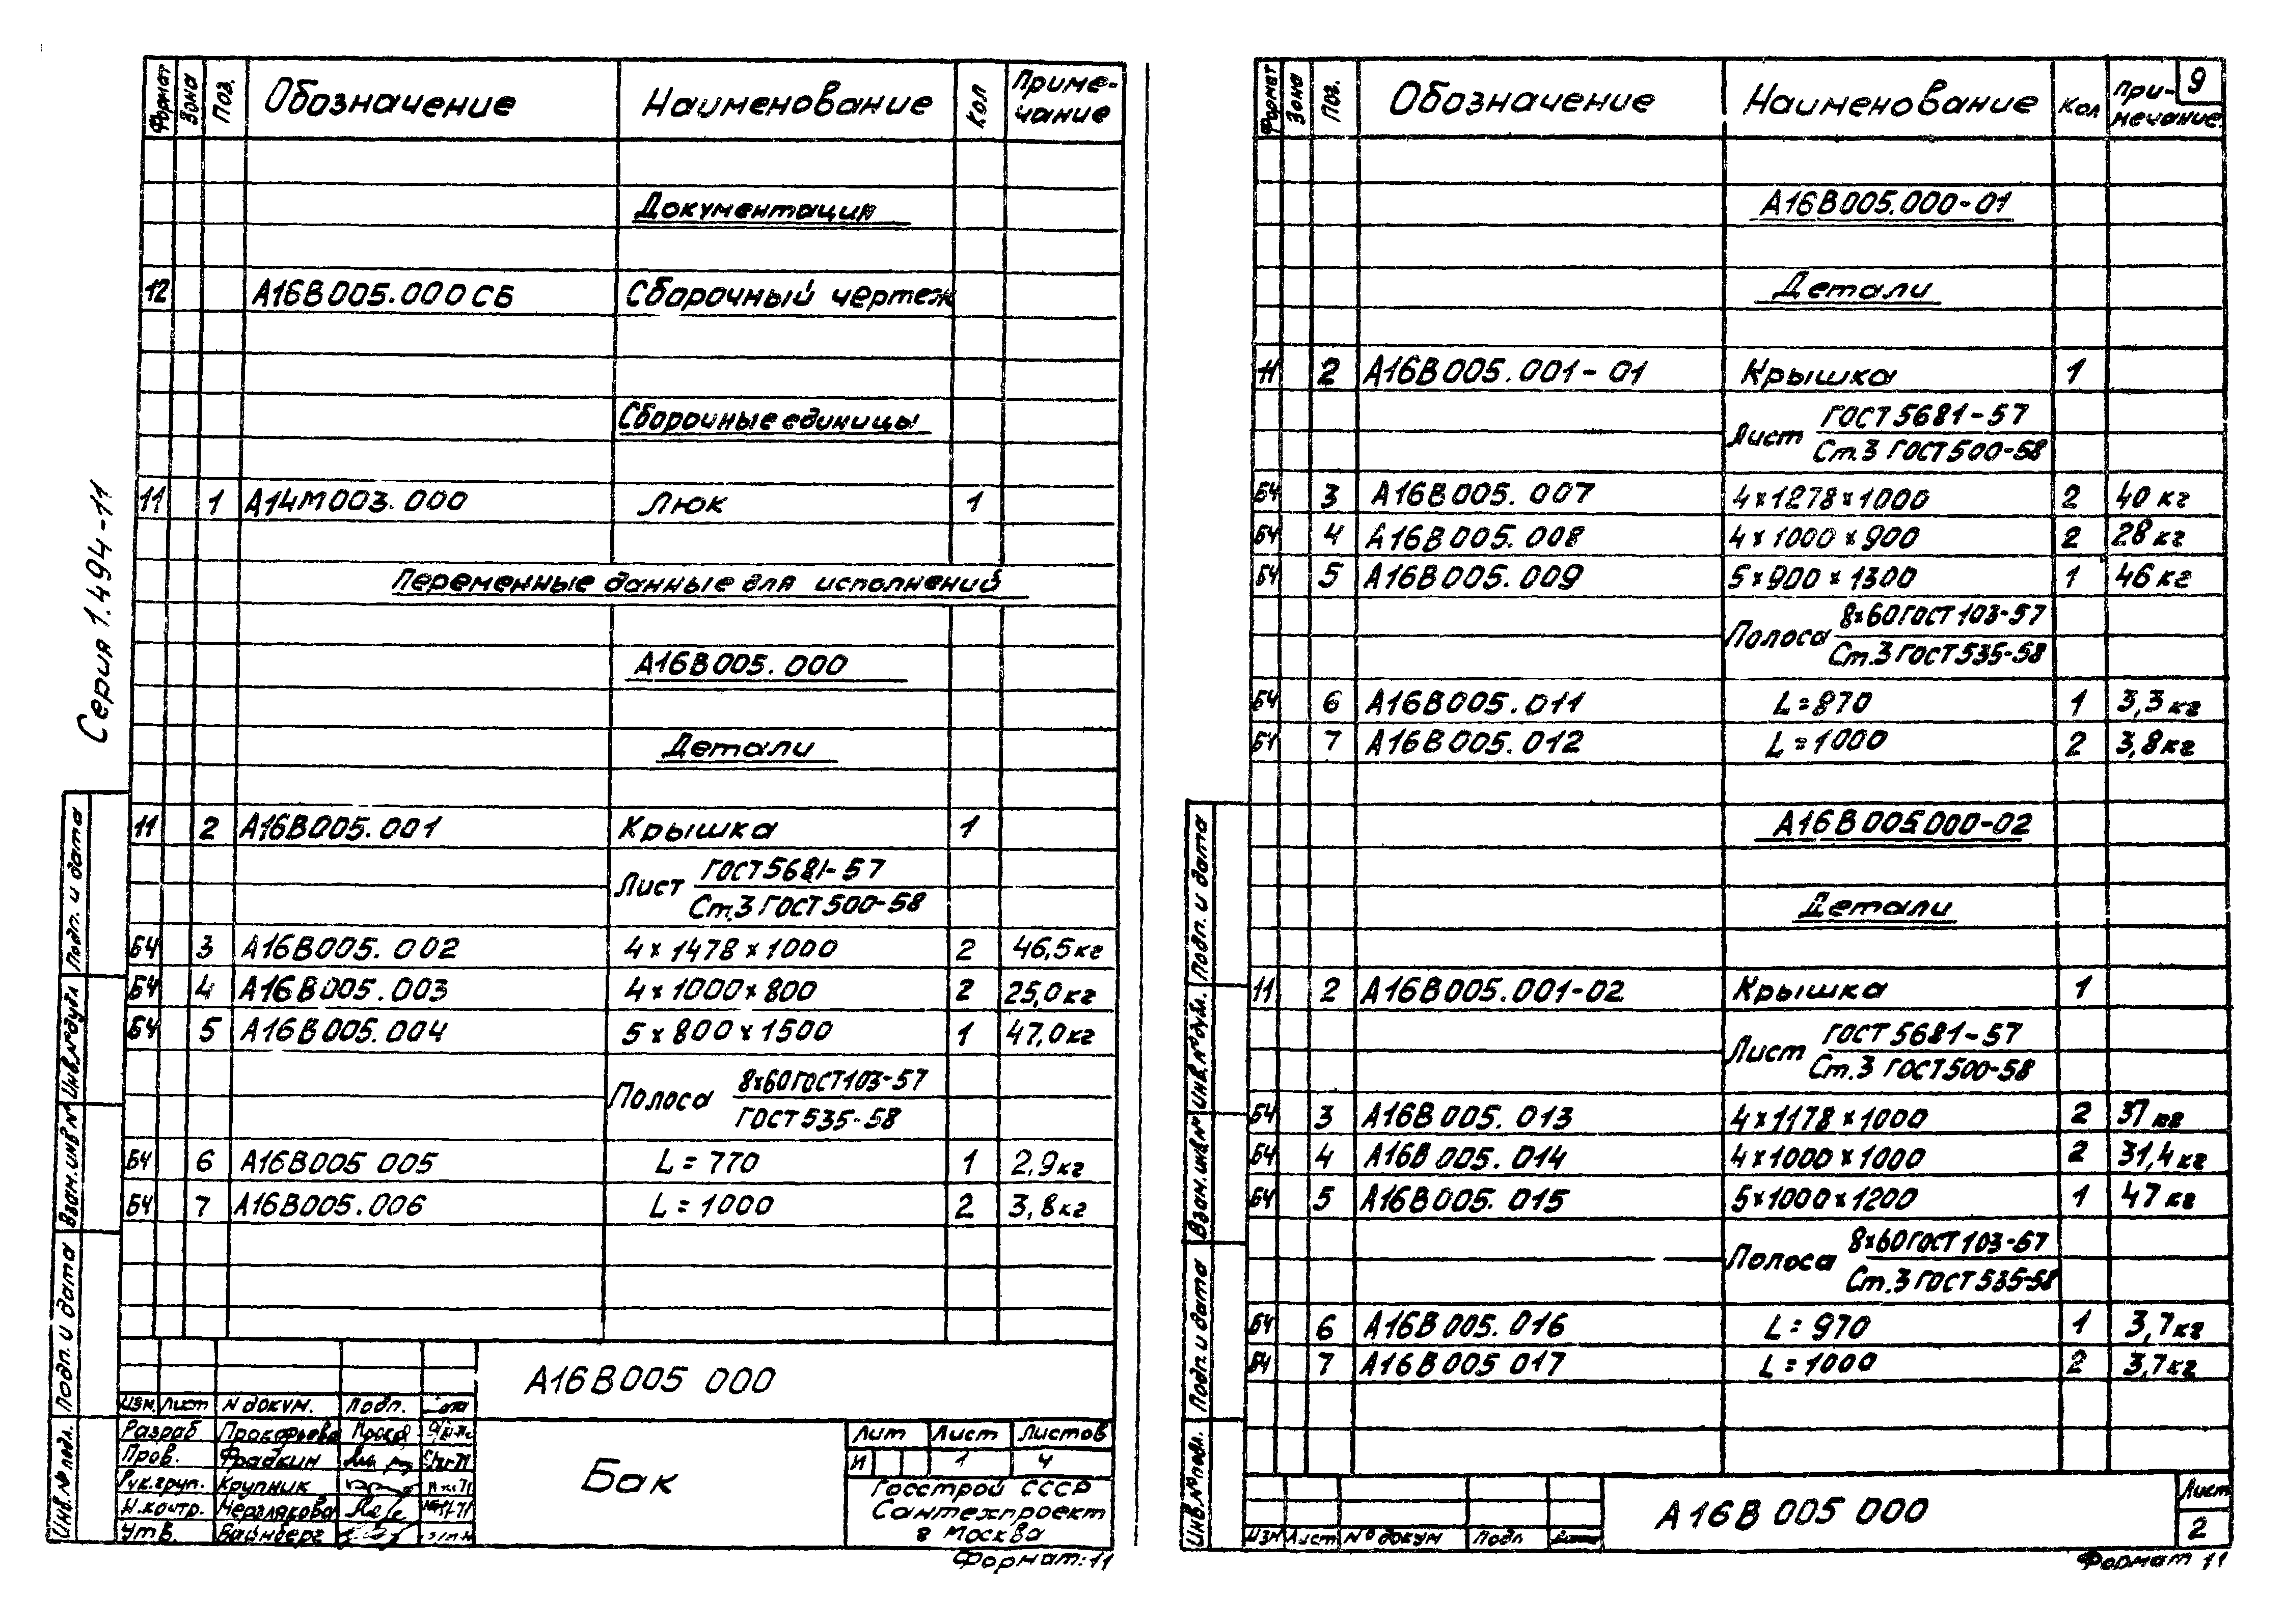 Формат Зона Поз. Обозначение Наименование Кол Приме-чание
Документация
12 А16В005.000СБ Сборочный чертеж
Сборочные единицы
11 1 А14М003.000 Люк 1
Переменные данные для исполнений
А16В005.000
Детали
11 2 А16В005.001 Крышка 1
Лист ГОСТ 5681-57
Ст.3 ГОСТ 500-58
БЧ 3 А16В005.002 4×1478×1000 2 46,5кг
БЧ 4 А16В005.003 4×1000×800 2 25,0кг
БЧ 5 А16В005.004 5×800×1500 1 47,0кг
Полоса 8×60 ГОСТ 103-57
ГОСТ 535-58
БЧ 6 А16В005 005 L=770 1 2,9кг
БЧ 7 А16В005.006 L=1000 2 3,8кг
Серия 1.494-11
Подп. и дата
Инв.№дубл
Взам.инв№
Подп. и дата
Инв.№подл.
А16В005 000
Изм. Лист N докум. Подп.
Разраб Прокофьева
Пров. Фрадкин
Рук.груп. Крупник
Н.контр. Мерзлякова
Утв. Вайнберг
Бак
Лит Лист Листов
И 1 4
Госстрой СССР
Сантехпроект
г Москва
Формат:11
Формат Зона Поз. Обозначение Наименование Кол При-мечание.
9
А16В005.000-01
Детали
11 2 А16В005.001-01 Крышка 1
Лист ГОСТ 5681-57
Ст.3 ГОСТ 500-58
БЧ 3 А16В005.007 4×1278×1000 2 40 кг
БЧ 4 А16В005.008 4×1000×900 2 28 кг
БЧ 5 А16В005.009 5×900×1300 1 46 кг
Полоса 8×60 ГОСТ 103-57
Ст.3 ГОСТ 535-58
БЧ 6 А16В005.011 L=870 1 3,3кг
БЧ 7 А16В005.012 L=1000 2 3,8кг
А16В005.000-02
Детали
11 2 А16В005.001-02 Крышка 1
Лист ГОСТ 5681-57
Ст.3 ГОСТ 500-58
БЧ 3 А16В005.013 4×1178×1000 2 37 кг
БЧ 4 А16В005.014 4×1000×1000 2 31,4кг
БЧ 5 А16В005.015 5×1000×1200 1 47кг
Полоса 8×60 ГОСТ 103-57
Ст.3 ГОСТ 535-58
БЧ 6 А16В005.016 L=970 1 3,7кг
БЧ 7 А16В005 017 L=1000 2 3,7кг
Подп. и дата
Инв.№дубл.
Взам.инв.№
Подп. и дата
Инв.№подл.
Изм Лист №докум Подп
А16В005 000
Лист
2
Формат 11